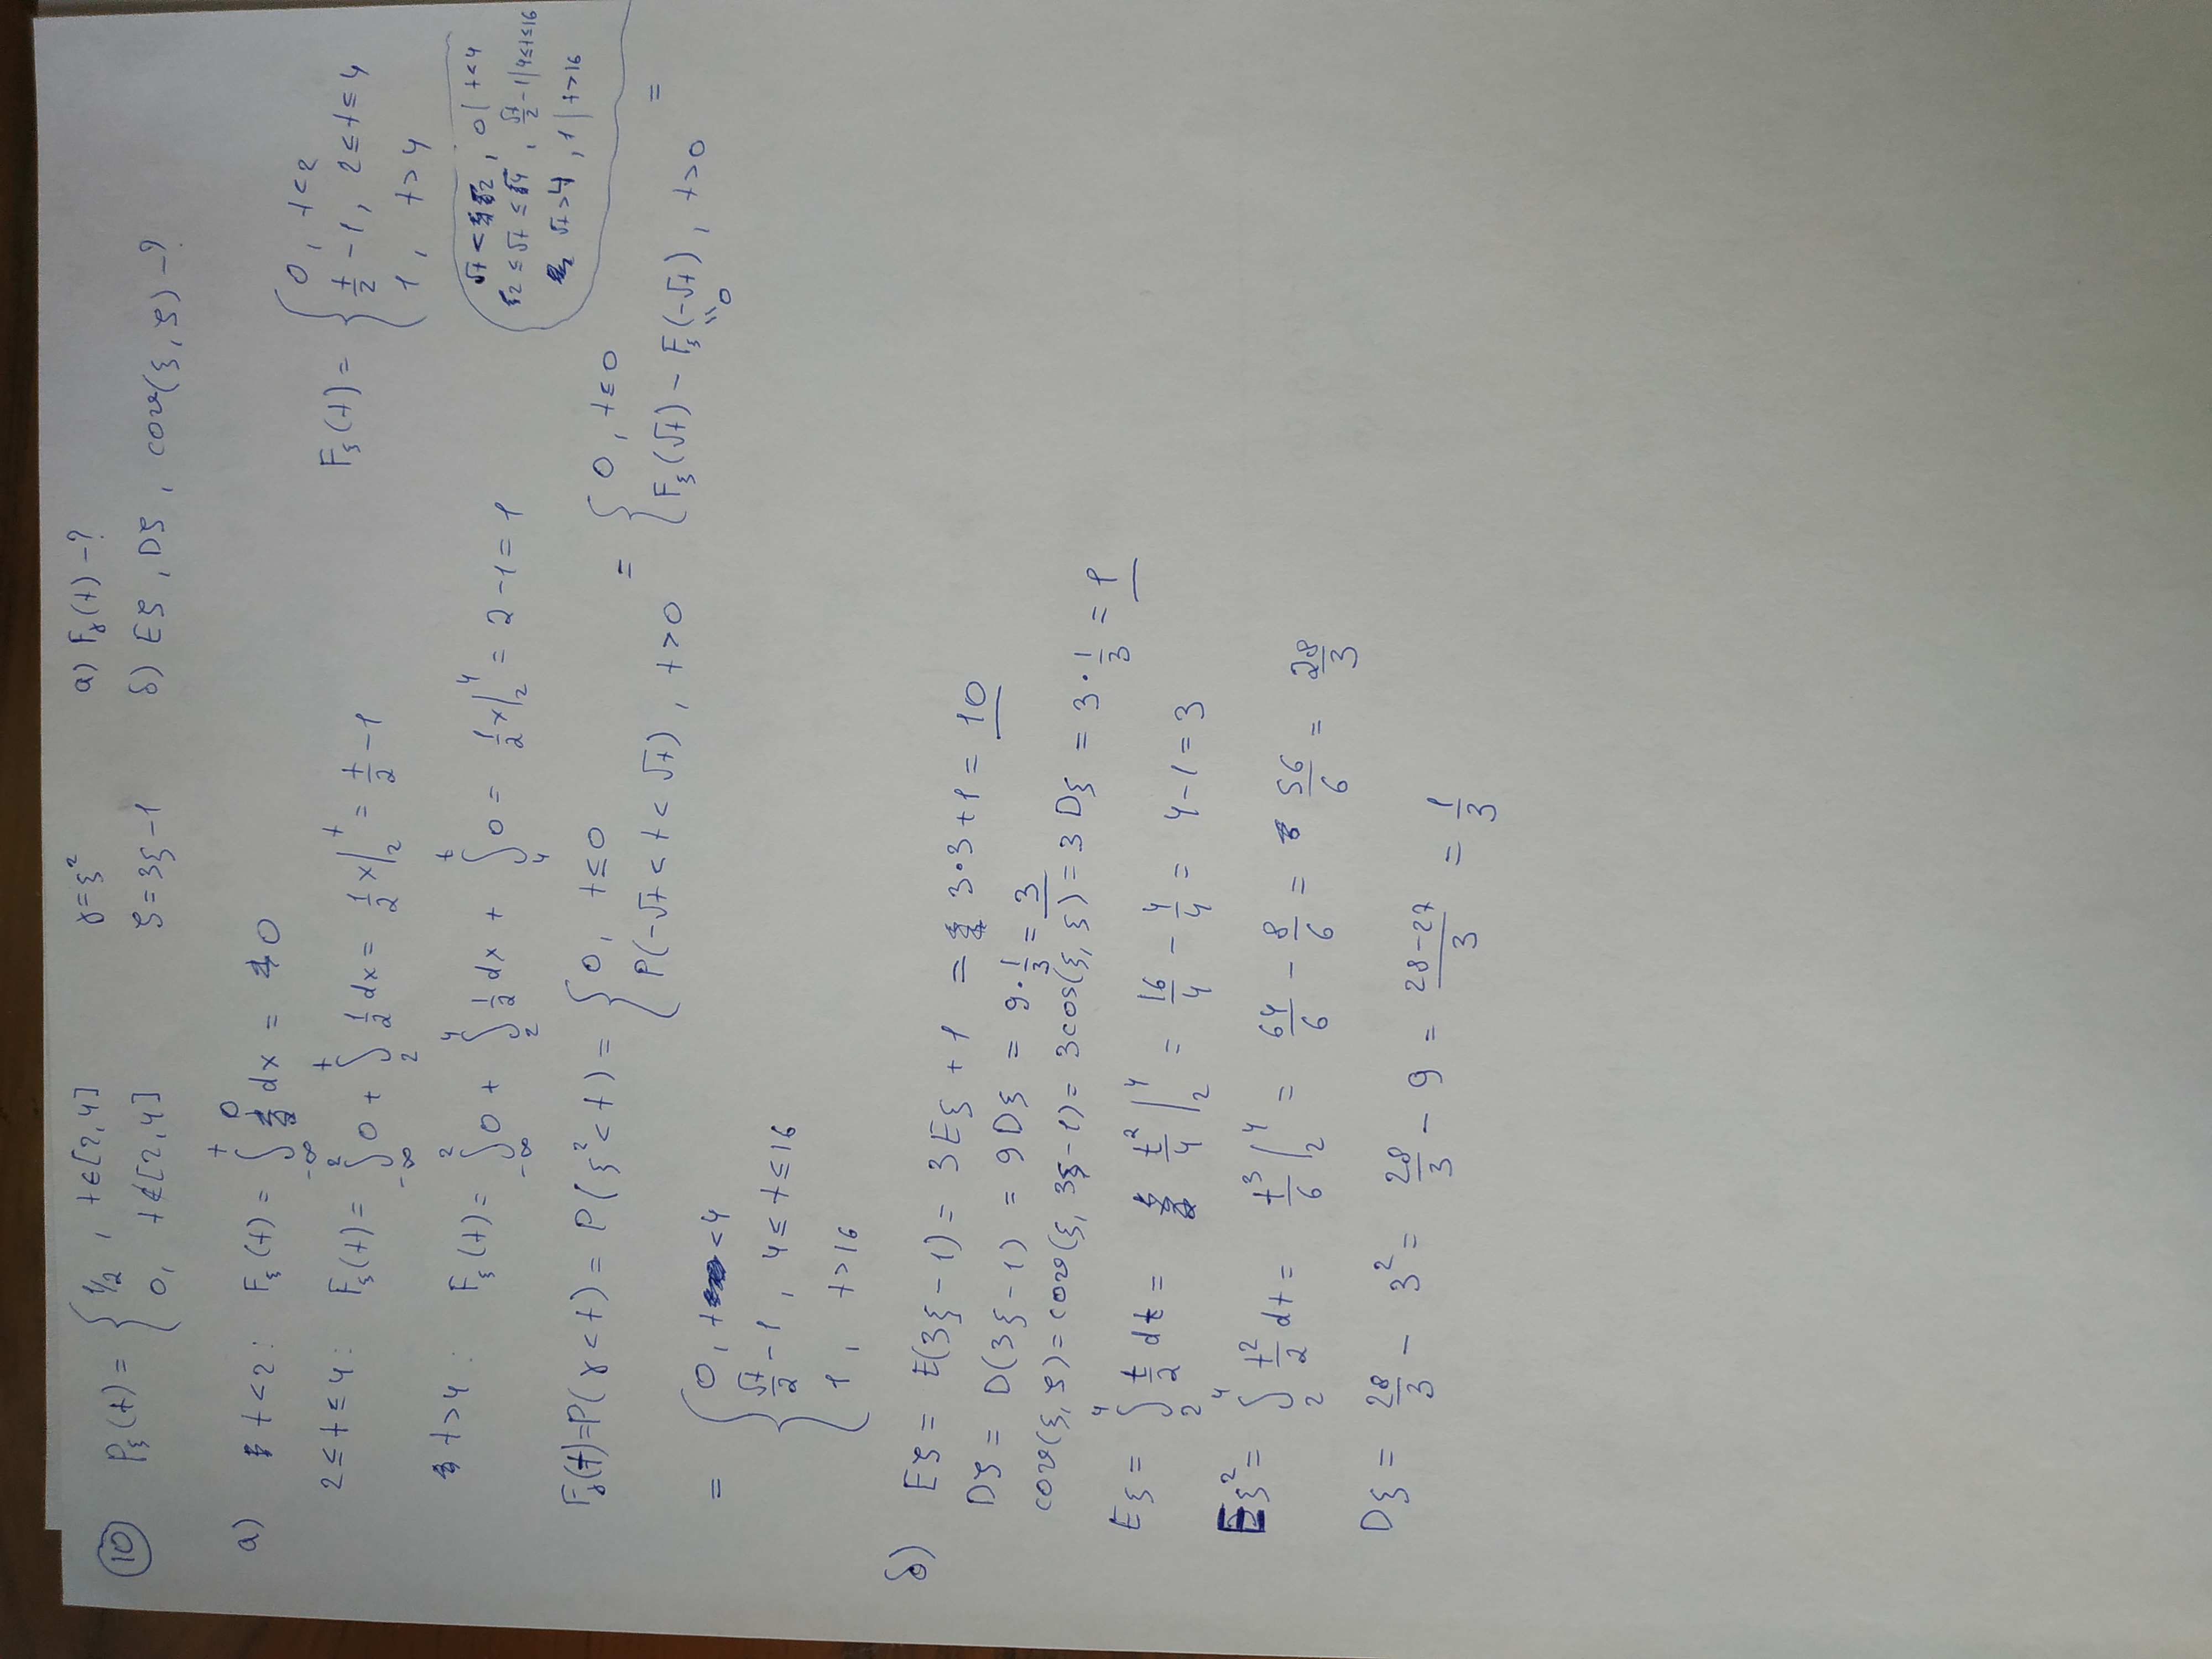 10 P_ξ(t) = { 1/2, t∈[2,4] γ=ξ² а) F_γ(t) -?
0, t∉[2,4] ζ=3ξ-1 б) Eζ, Dζ, cov(ξ,ζ) -?
а) t<2: F_ξ(t) = ∫_{-∞}^{t} 0 dx = 0
2≤t≤4: F_ξ(t) = ∫_{-∞}^{2} 0 + ∫_{2}^{t} 1/2 dx = 1/2 x|_2^t = t/2 - 1
t>4: F_ξ(t) = ∫_{-∞}^{2} 0 + ∫_{2}^{4} 1/2 dx + ∫_{4}^{t} 0 = 1/2 x|_2^4 = 2-1 = 1
F_ξ(t) = { 0, t<2
t/2 - 1, 2≤t≤4
1, t>4
√t < 2, 0 | t<4
2 ≤ √t ≤ 4, √t/2 - 1 | 4≤t≤16
√t>4, 1 | t>16
F_γ(t)=P(γ<t) = P(ξ²<t) = { 0, t≤0 = { 0, t≤0
P(-√t < t < √t), t>0 F_ξ(√t) - F_ξ(-√t), t>0 =
"0
= { 0, t<4
√t/2 - 1, 4≤t≤16
1, t>16
б) Eζ = E(3ξ-1) = 3Eξ + 1 = 3·3+1 = 10
Dζ = D(3ξ-1) = 9Dξ = 9·1/3 = 3
cov(ξ,ζ) = cov(ξ, 3ξ-1) = 3cos(ξ,ξ) = 3Dξ = 3·1/3 = 1
Eξ = ∫_{2}^{4} t/2 dt = t²/4 |_2^4 = 16/4 - 4/4 = 4-1 = 3
Eξ² = ∫_{2}^{4} t²/2 dt = t³/6 |_2^4 = 64/6 - 8/6 = 56/6 = 28/3
Dξ = 28/3 - 3² = 28/3 - 9 = (28-27)/3 = 1/3